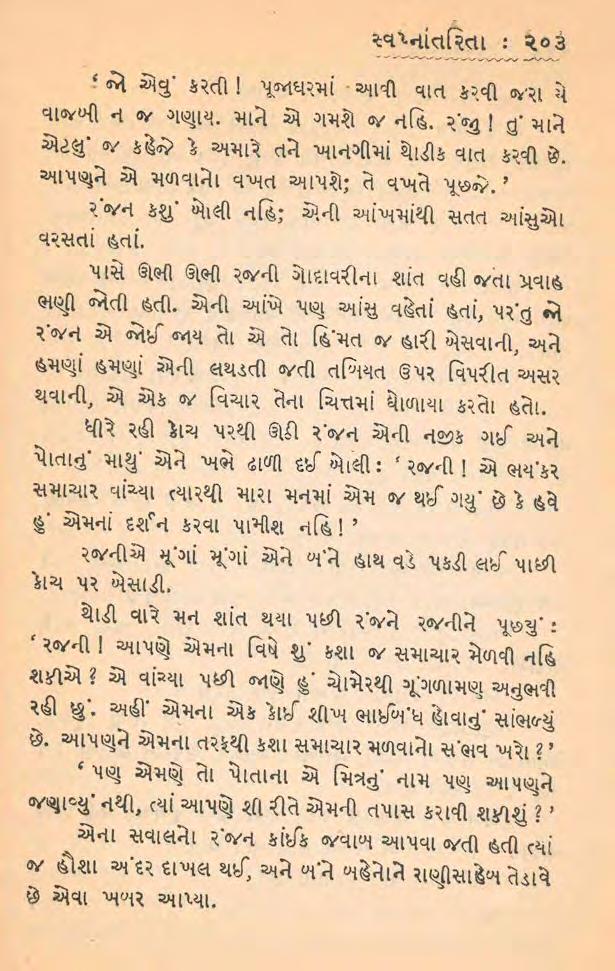 સ્વપ્નાંતરિતા : ૨૦૩
‘જો એવું કરતી ! પૂજાઘરમાં આવી વાત કરવી જરા યે
વાજબી ન જ ગણાય. માને એ ગમશે જ નહિ. રંજી ! તું માને
એટલું જ કહેજે કે અમારે તને ખાનગીમાં થોડીક વાત કરવી છે.
આપણને એ મળવાનો વખત આપશે; તે વખતે પૂછજે.’
રંજન કશું બોલી નહિ; એની આંખમાંથી સતત આંસુઓ
વરસતાં હતાં.
પાસે ઊભી ઊભી રજની ગોદાવરીના શાંત વહી જતા પ્રવાહ
ભણી જોતી હતી. એની આંખે પણ આંસુ વહેતાં હતાં, પરંતુ જો
રંજન એ જોઈ જાય તો એ તો હિંમત જ હારી બેસવાની, અને
હમણાં હમણાં એની લથડતી જતી તબિયત ઉપર વિપરીત અસર
થવાની, એ એક જ વિચાર તેના ચિત્તમાં ઘોળાયા કરતો હતો.
ધીરે રહી કોચ પરથી ઊઠી રંજન એની નજીક ગઈ અને
પોતાનું માથું એને ખભે ઢાળી દઈ બોલી : ‘રજની ! એ ભયંકર
સમાચાર વાંચ્યા ત્યારથી મારા મનમાં એમ જ થઈ ગયું છે કે હવે
હું એમનાં દર્શન કરવા પામીશ નહિ !’
રજનીએ મૂંગાં મૂંગાં એને બંને હાથ વડે પકડી લઈ પાછી
કોચ પર બેસાડી.
થોડી વારે મન શાંત થયા પછી રંજને રજનીને પૂછ્યું :
‘રજની ! આપણે એમના વિષે શું કશા જ સમાચાર મેળવી નહિ
શકીએ ? એ વાંચ્યા પછી જાણે હું ચોમેરથી ગૂંગળામણ અનુભવી
રહી છું. અહીં એમના એક કોઈ શીખ ભાઈબંધ હોવાનું સાંભળ્યું
છે. આપણને એમના તરફથી કશા સમાચાર મળવાનો સંભવ ખરો ?’
‘પણ એમણે તો પોતાના એ મિત્રનું નામ પણ આપણને
જણાવ્યું નથી, ત્યાં આપણે શી રીતે એમની તપાસ કરાવી શકીશું ?’
એના સવાલનો રંજન કાંઈક જવાબ આપવા જતી હતી ત્યાં
જ હૌશા અંદર દાખલ થઈ, અને બંને બહેનોને રાણીસાહેબ તેડાવે
છે એવા ખબર આપ્યા.